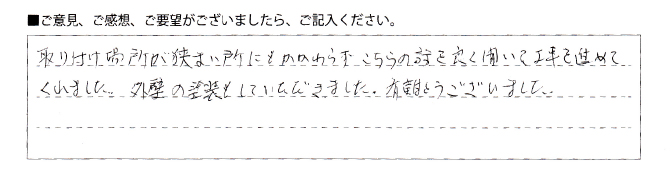 ■ご意見、ご感想、ご要望がございましたら、ご記入ください。
取り付け場所が狭まい所にもかかわらず こちらの話を良く聞いて工事を進めて
くれました。 外壁の塗装もしていただきました。有難とうございました。